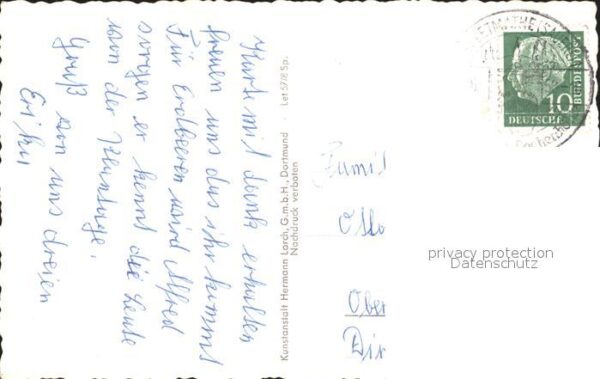 Karte mit dank erhalten
freuen uns das ihr kommt
Für Erdbeeren wird Alfred
sorgen er kennt die Leute
von der
Gruß von uns dreien
Kunstanstalt Hermann Lorch, G.m.b.H., Dortmund · Let 5778 Sp.
Nachdruck verboten
10
DEUTSCHE
BUNDESPOST
Famil
Otto
Ober
Dir
privacy protection
Datenschutz